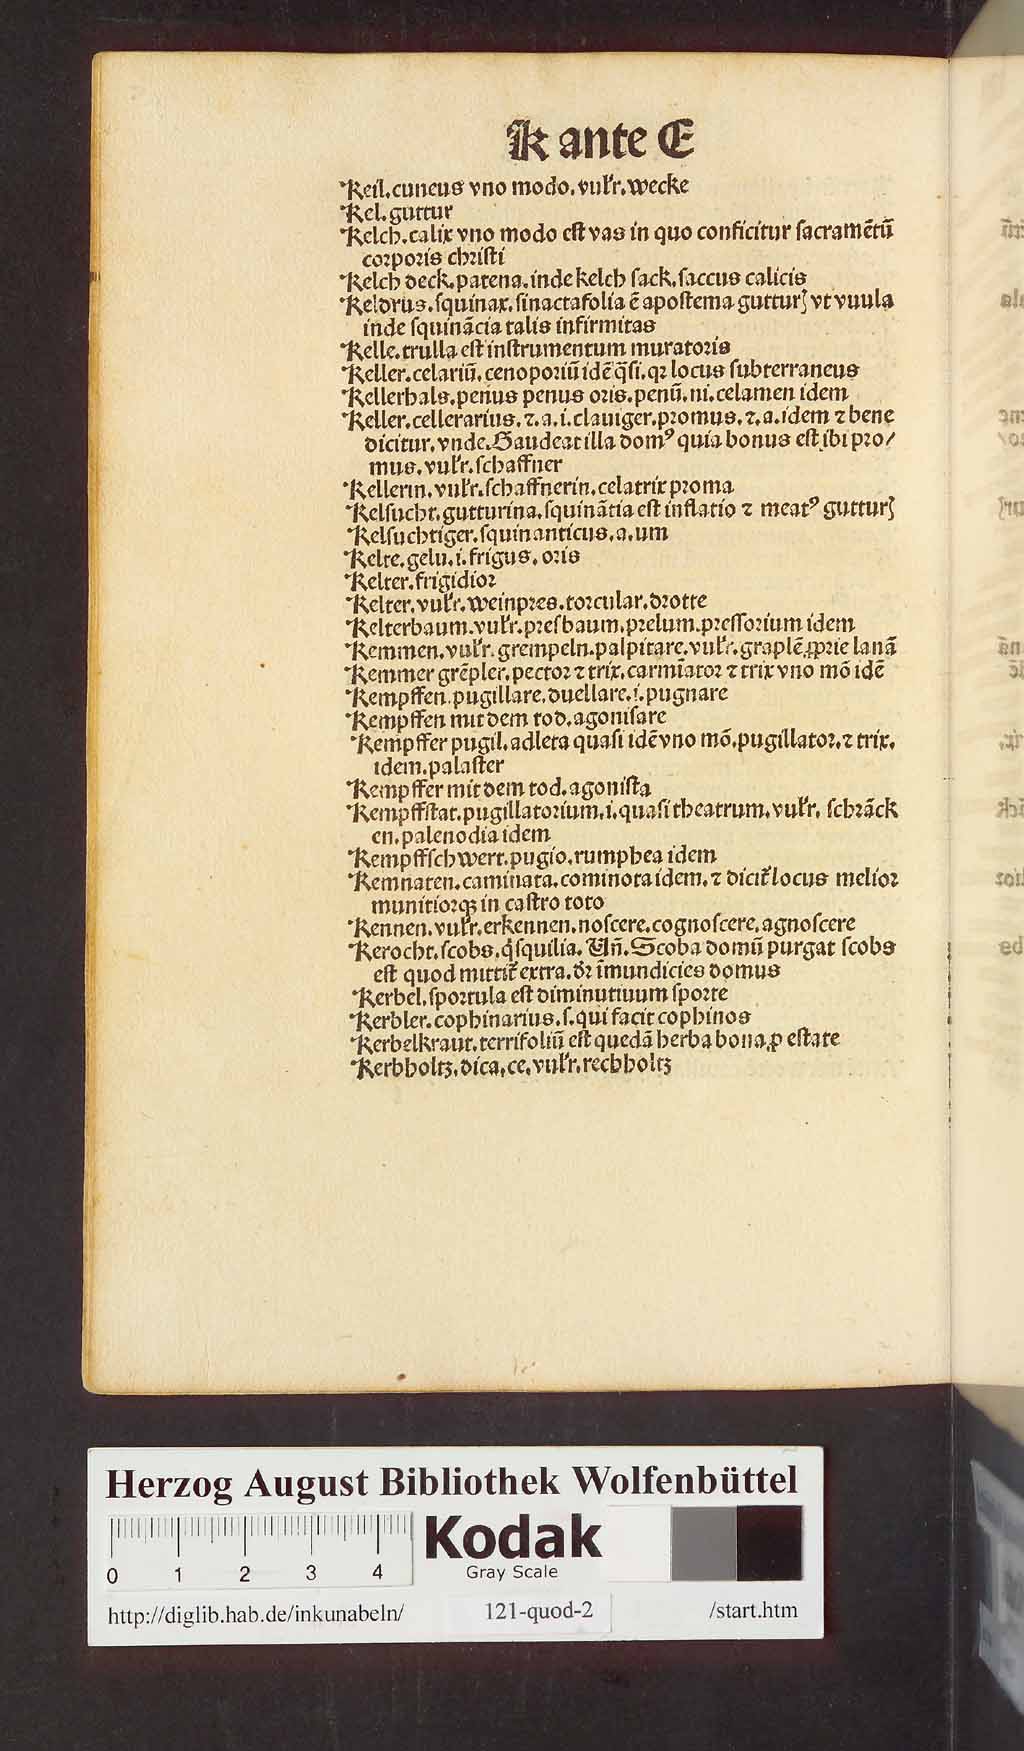 K ante E
Keil. cuneus vno modo. vulr̄. wecke
Kel. guttur
Kelch. calix vno modo est vas in quo conficitur sacramētū
corporis christi
Kelch deck. patena. inde kelch sack. saccus calicis
Keldrus. squinax. sinactafolia ē apostema gutturꝭ vt vuula
inde squināncia talis infirmitas
Kelle. trulla est instrumentum muratoris
Keller. celariū. cenoporiū idē q̄si. qꝛ locus subterraneus
Kellerhals. penus penus oris. penū. ni. celamen idem
Keller. cellerarius. ꝛ. a. i. clauiger. promus. ꝛ. a. idem ꝛ bene
dicitur. vnde. Gaudeat illa domꝰ quia bonus est ibi pro/
mus. vulr̄. schaffner
Kellerin. vulr̄. schaffnerin. celatrix proma
Kelsucht. gutturina. squinātia est inflatio ꝛ meatꝰ gutturꝭ
Kelsuchtiger. squinanticus. a. um
Kelte. gelu. i. frigus. oris
Kelter. frigidior
Kelter. vulr̄. weinpres. torcular. drotte
Kelterbaum. vulr̄. presbaum. prelum. pressorium idem
Kemmen. vulr̄. grempeln. palpitare. vulr̄. graplē. ꝓprie lanā
Kemmer grēpler. pector ꝛ trix. carmīator ꝛ trix vno mō idē
Kempffen. pugillare. duellare. i. pugnare
Kempffen mit dem tod. agonisare
Kempffer pugil. adleta quasi idē vno mō. pugillator. ꝛ trix.
idem. palaster
Kempffer mit dem tod. agonista
Kempffstat. pugillatorium. i. quasi theatrum. vulr̄. schrāck
en. palenodia idem
Kempffschwert. pugio. rumphea idem
Kemnaten. caminata. cominota idem. ꝛ dicit̄ locus melior
munitiorqꝫ in castro toto
Kennen. vulr̄. erkennen. noscere. cognoscere. agnoscere
Kerocht. scobs. q̇squilia. Vn̄. Scoba domū purgat scobs
est quod mittit̄ extra. dr̄ īmundicies domus
Kerbel. sportula est diminutiuum sporte
Kerbler. cophinarius. s. qui facit cophinos
Kerbelkraut. terrifoliū est quedā herba bona ꝑ estate
Kerbholtz. dica. ce. vulr̄. rechholtz
Herzog August Bibliothek Wolfenbüttel
0 1 2 3 4
Kodak
Gray Scale
http://diglib.hab.de/inkunabeln/ 121-quod-2 /start.htm